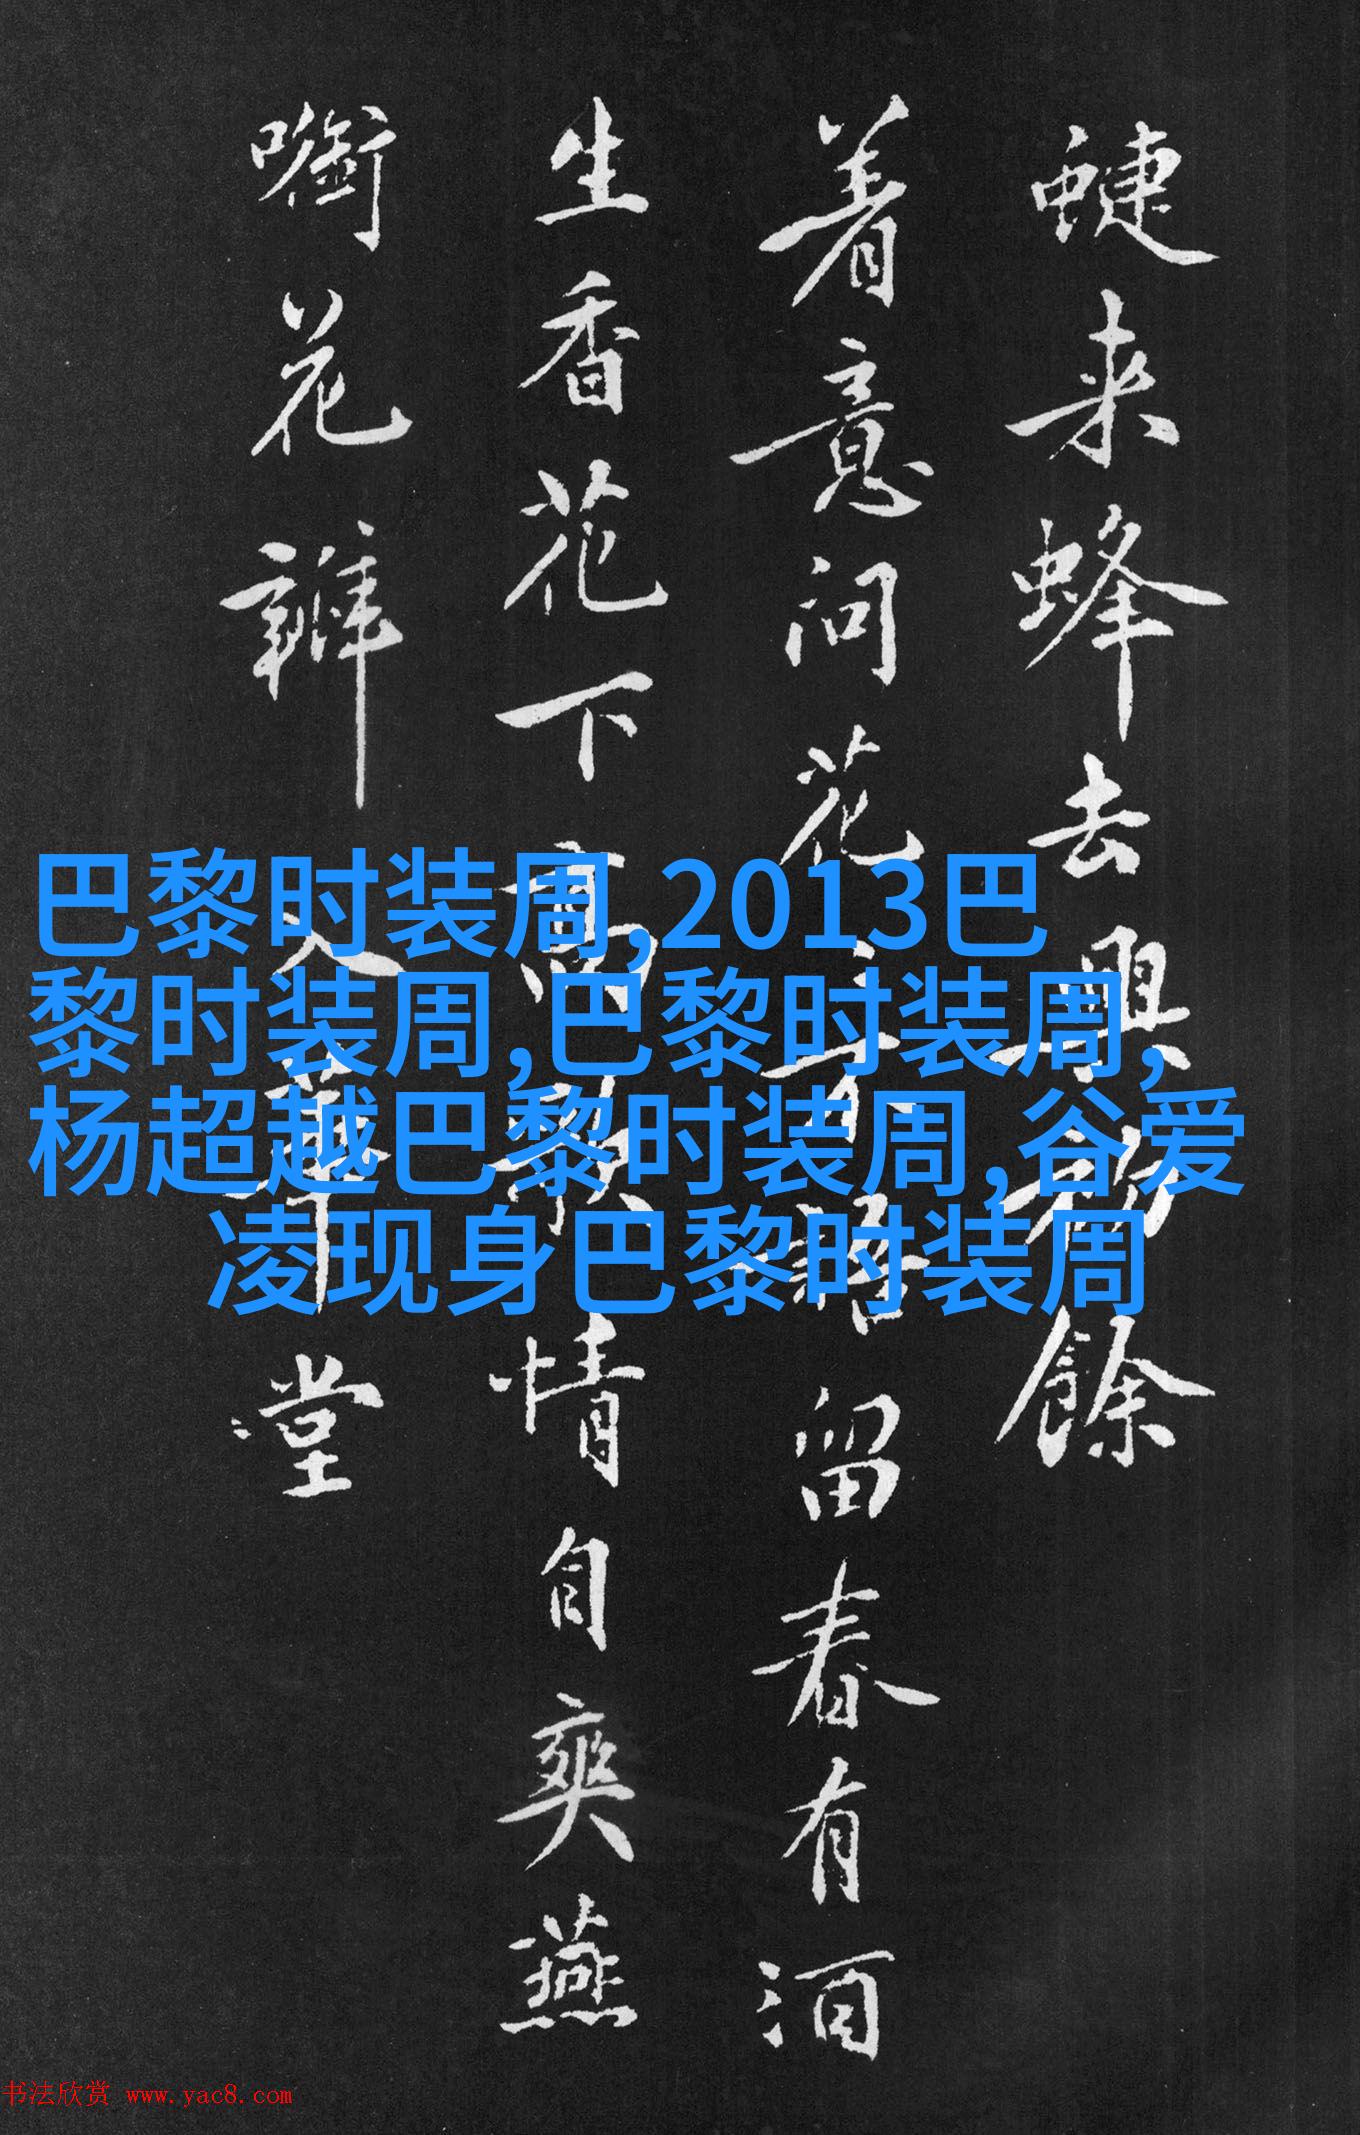 蜨来蜂去興餘
着意问花語留春有酒
生香花下高歌情自爽燕
㘅花瓣入華堂
巴黎时装周,2013巴
黎时装周,巴黎时装周,
杨超越巴黎时装周,谷爱
凌现身巴黎时装周
书法欣赏 www.yac8.com